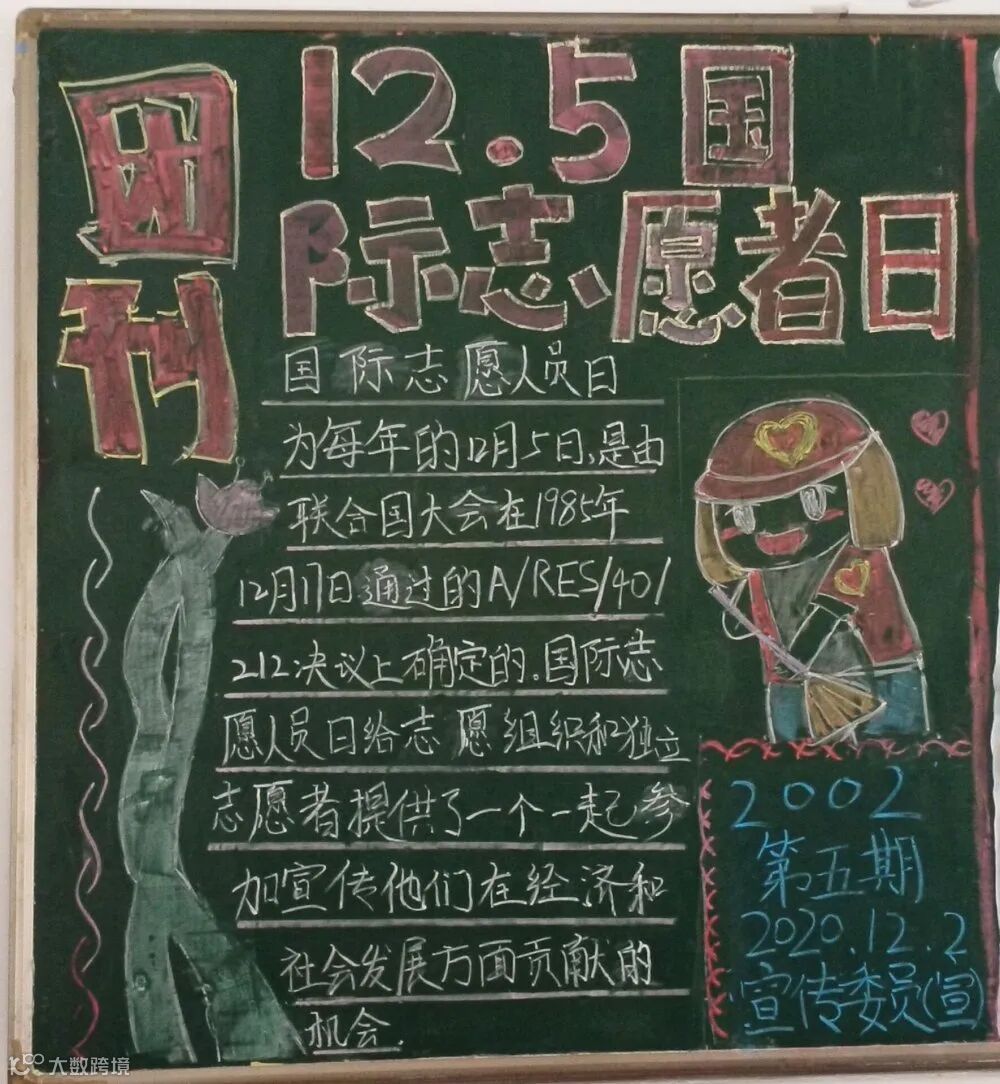 团刊
12.5国
际志愿者日
国际志愿人员日
为每年的12月5日,是由
联合国大会在1985年
12月17日通过的A/RES/40/
212决议上确定的.国际志
愿人员日给志愿组织和独立
志愿者提供了一个一起参
加宣传他们在经济和
社会发展方面贡献的
机会.
2002
第五期
2020.12.2
宣传委员(宣)
大数跨境